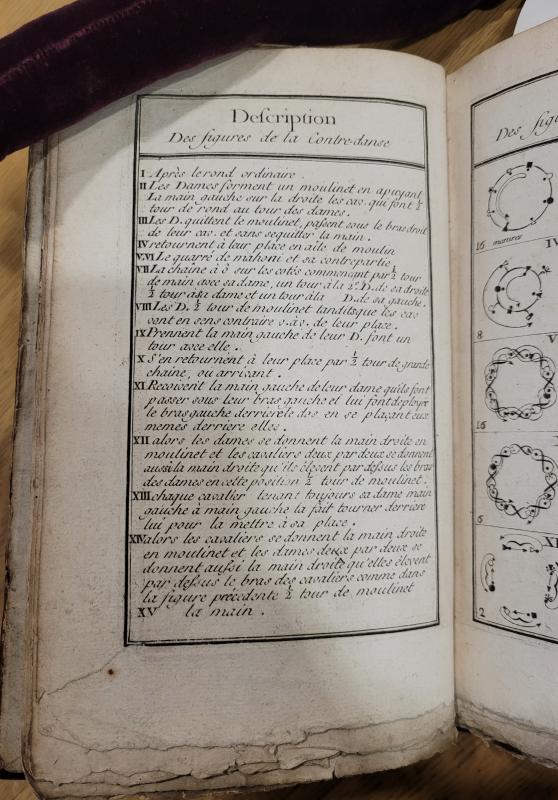 Description
Des figures de la Contre-danse
I Après le rond ordinaire.
II Les Dames forment un moulinet en apuyant
La main gauche sur la droite les cav. qui font ½
tour de rond au tour des dames.
III Les D. quittent le moulinet, passent sous le bras droit
de leur cav. et sans sequiller la main.
IV retournent à leur place en aile de moulin
V.VI Le quarré de mahoni et sa contrepartie
VII La chaine à 8 sur les cotés commencant par ½ tour
de main avec sa dame, un tour à la 2e D. de sa droite
½ tour à sa dame et un tour à la D. de sa gauche.
VIII Les D. ½ tour de moulinet tandisque les cav
vont en sens contraire v. à v. de leur place.
IX Prennent la main gauche de leur D. font un
tour avec elle.
X S'en retournent à leur place par ½ tour de grande
chaine, ou arrivant.
XI Recoivent la main gauche de leur dame qu'ils font
passer sous leur bras gauche et lui font deployre
le bras gauche derriere le dos en se plaçant eux
memes derriere elles.
XII alors les dames se donnent la main droite en
moulinet et les cavaliers deux par deux se donnent
aussi la main droite qu'ils élevent par dessus les bras
des dames en cette position ½ tour de moulinet.
XIII chaque cavalier tenant toujours sa dame main
gauche à main gauche la fait tourner derriere
lui pour la mettre à sa place.
XIV alors les cavaliers se donnent la main droite
en moulinet et les dames deux par deux se
donnent aussi la main droite qu'elles élevent
par dessus le bras des cavaliers comme dans
la figure précedente ½ tour de moulinet
XV la main.
Des figu
16 mesures
IV
8
V
16
XI
2